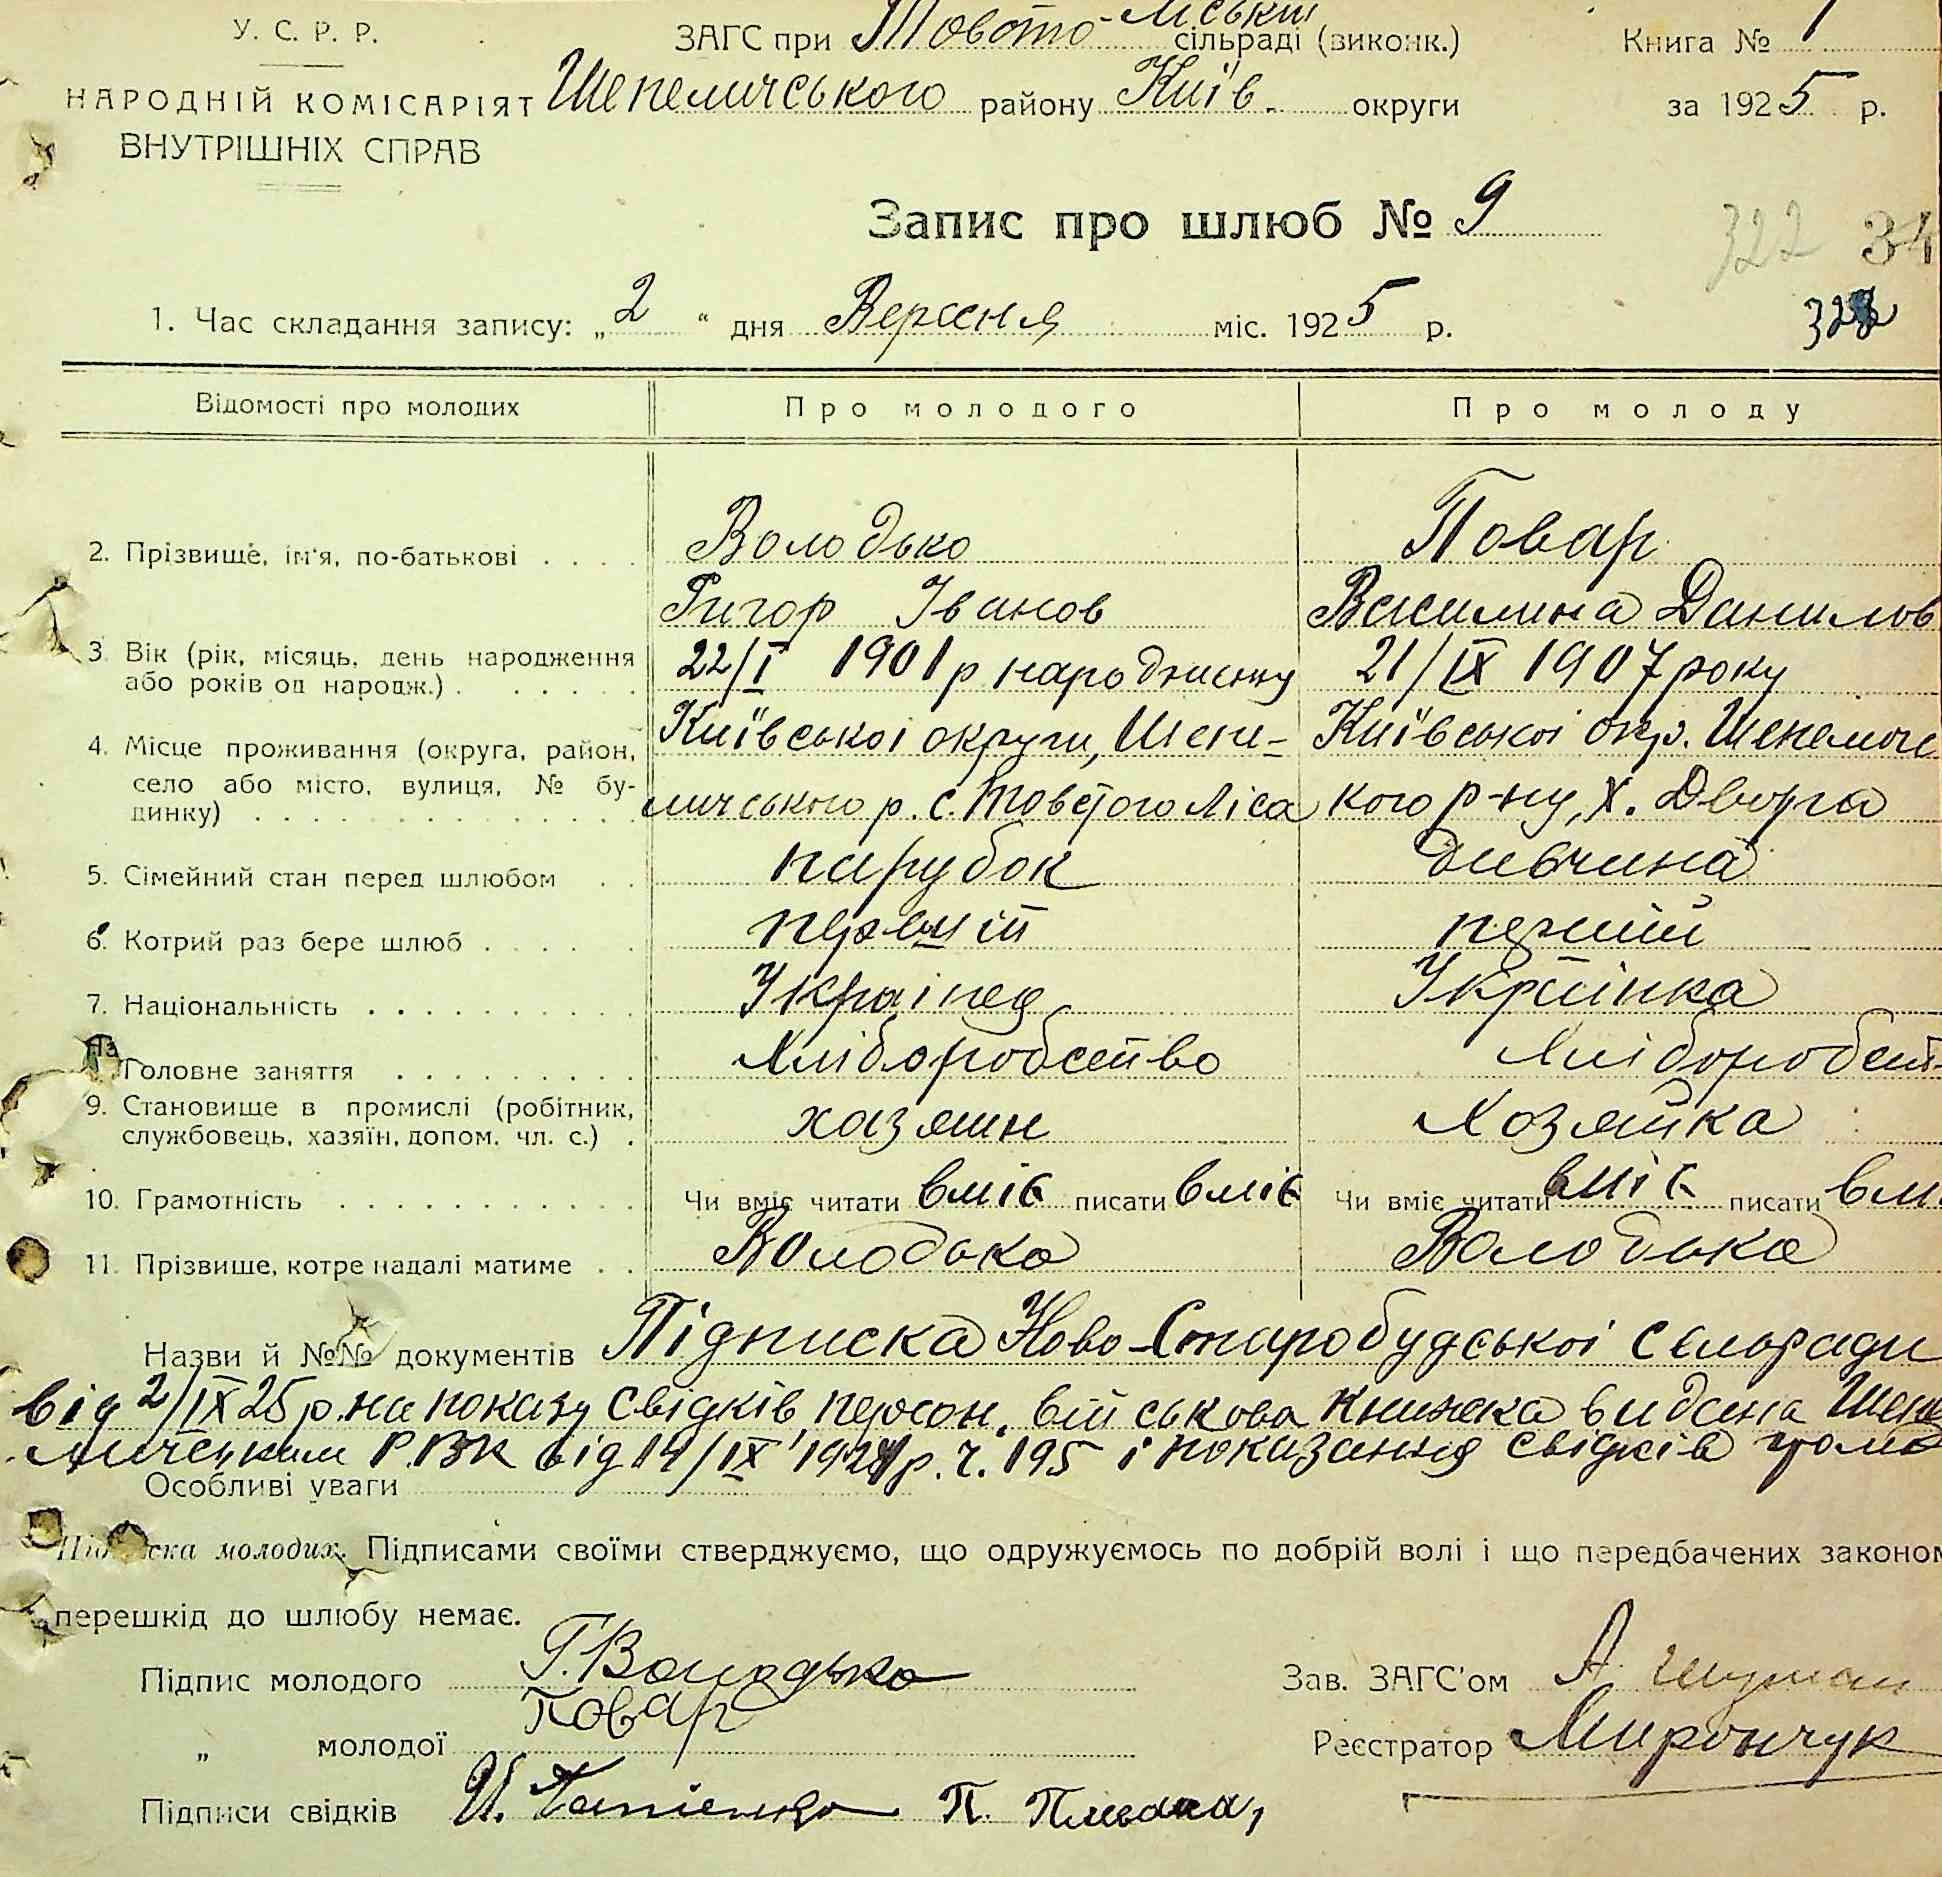 У. С. Р. Р.
ЗАГС при Товсто-Лісській сільраді (виконк.) Книга № 1
НАРОДНІЙ КОМІСАРІЯТ Шепеличського району Київ. округи за 1925 р.
ВНУТРІШНІХ СПРАВ
Запис про шлюб № 9
322 34
1. Час складання запису: „2“ дня Вересня міс. 1925 р.
Відомості про молодих Про молодого Про молоду
2. Прізвище, ім'я, по-батькові Володько Повар
Григор Іванов Василина Данилов
3. Вік (рік, місяць, день народження 22/I 1901 р народження 21/IX 1907 року
або років од народж.)
4. Місце проживання (округа, район, Київської округи, Шепе- Київської окр. Шепелич
село або місто, вулиця, № бу- личського р. с. Товстого Ліса кого р-ну, х. Дворга
динку)
5. Сімейний стан перед шлюбом парубок дивчина
6. Котрий раз бере шлюб перший перший
7. Національність Українец Українка
Головне заняття Хліборобство Хліборобст-
9. Становище в промислі (робітник, хазяин Хозяйка
службовець, хазяїн, допом. чл. с.)
10. Грамотність Чи вміє читати вміє писати вміє Чи вміє читати вміє писати вм
11. Прізвище, котре надалі матиме Володько Володько
Назви й №№ документів Підписка Ново-Старобудської сельради
від 2/IX 25 р. на показу свідків, персон. військова книжка видана Шепе
личецким Р.В.К від 14/IX 1924 р. ч. 195 і показання свідків
Особливі уваги
Підписка молодих. Підписами своїми стверджуємо, що одружуємось по добрій волі і що передбачених законом
перешкід до шлюбу немає.
Підпис молодого Г. Володько Зав. ЗАГС'ом А.
„ молодої Повар Реєстратор Мирончук
Підписи свідків И. П.